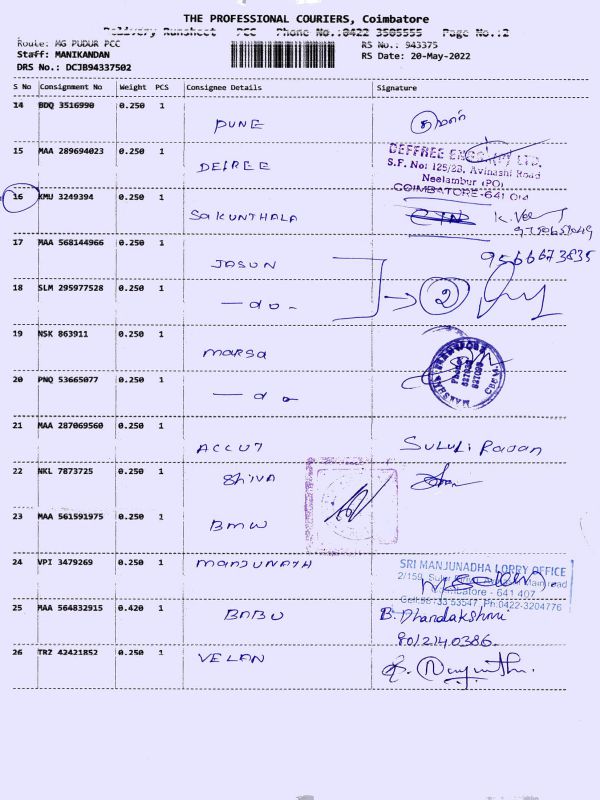 THE PROFESSIONAL COURIERS, Coimbatore
Delivery Runsheet PCC Phone No.:0422 3505555 Page No.:2
Route: MG PUDUR PCC
RS No.: 943375
Staff: MANIKANDAN
RS Date: 20-May-2022
DRS No.: DCJB94337502
S No Consignment No Weight PCS Consignee Details Signature
14 BDQ 3516990 0.250 1
PUNE
15 MAA 289694023 0.250 1
DEFREE
DEFFREE ENGG (P) LTD.
S.F. No: 125/2B, Avinashi Road
Neelambur (PO)
COIMBATORE-641 014
16 KMU 3249394 0.250 1
SAKUNTHALA
17 MAA 568144966 0.250 1
JASUN
9566673835
18 SLM 295977528 0.250 1
— do — 2
19 NSK 863911 0.250 1
MARSA
20 PNQ 53665077 0.250 1
— do —
21 MAA 287069560 0.250 1
ACCUT
22 NKL 7873725 0.250 1
SHIVA
23 MAA 561591975 0.250 1
BMW
24 VPI 3479269 0.250 1
MANJUNATH
SRI MANJUNADHA LORRY OFFICE
2/159, Main road
Coimbatore - 641 407
Ph:0422-3204776
25 MAA 564832915 0.420 1
BABU B. Dhanalakshmi
8012140386.
26 TRZ 42421852 0.250 1
VELAN